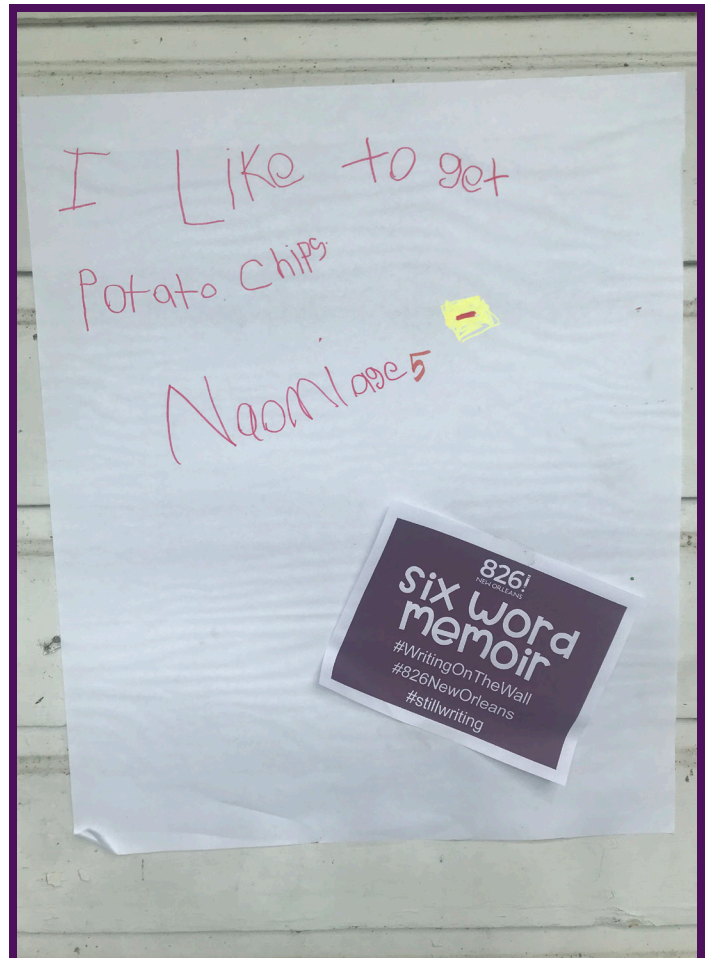 I Like to get
Potato chips.
-
Naomi age 5
826!
NEW ORLEANS
six word
memoir
#WritingOnTheWall
#826NewOrleans
#stillwriting